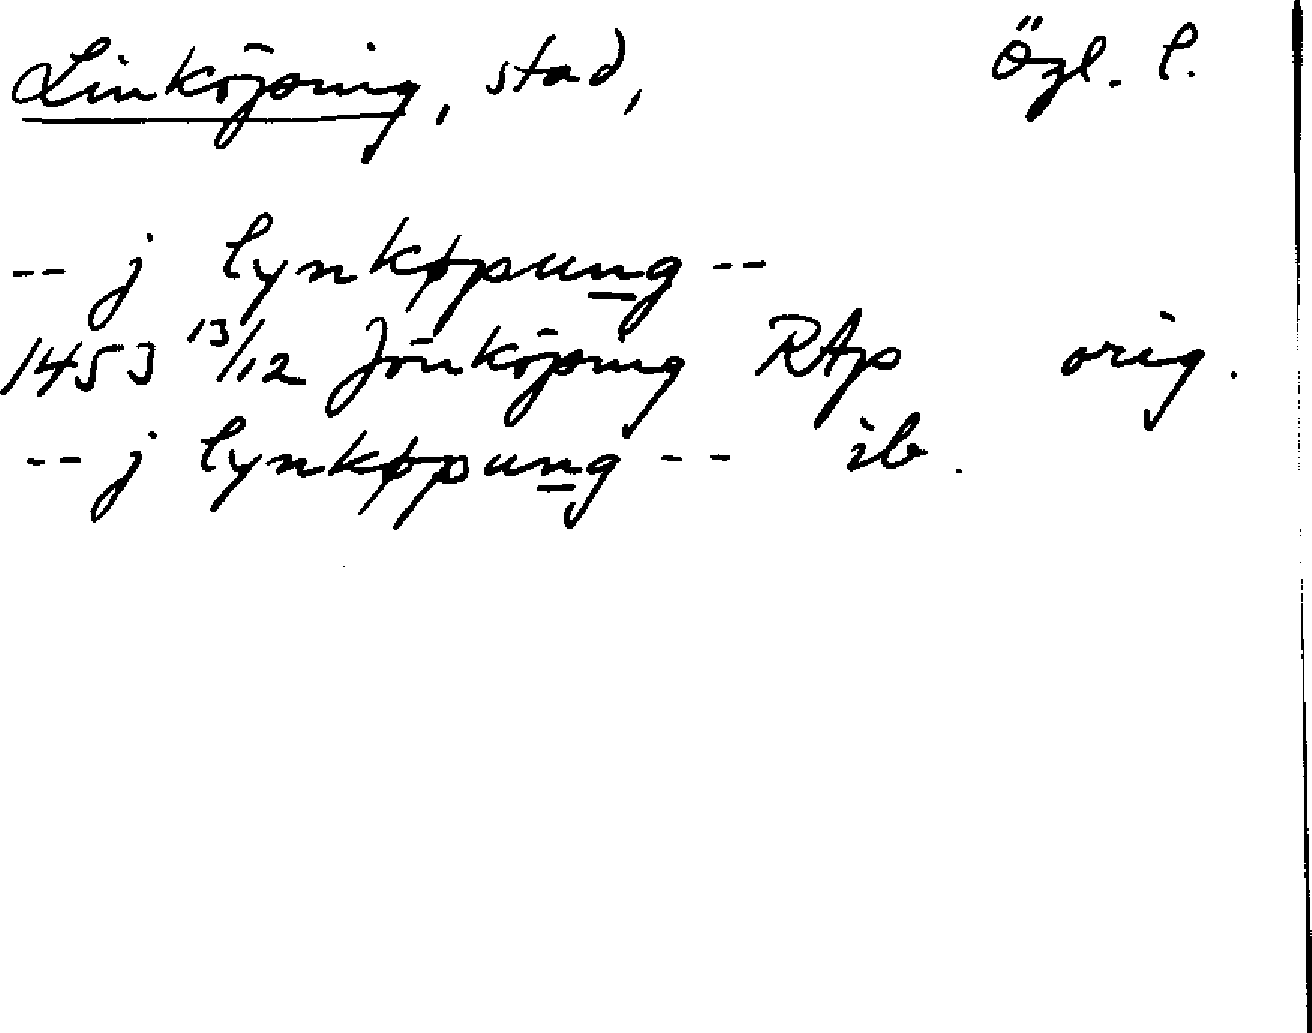 Linköping, stad, Ögl. l.
-- j lynkøpung --
1453 13/12 Jönköping RAp orig.
-- j lynkøpung -- ib.